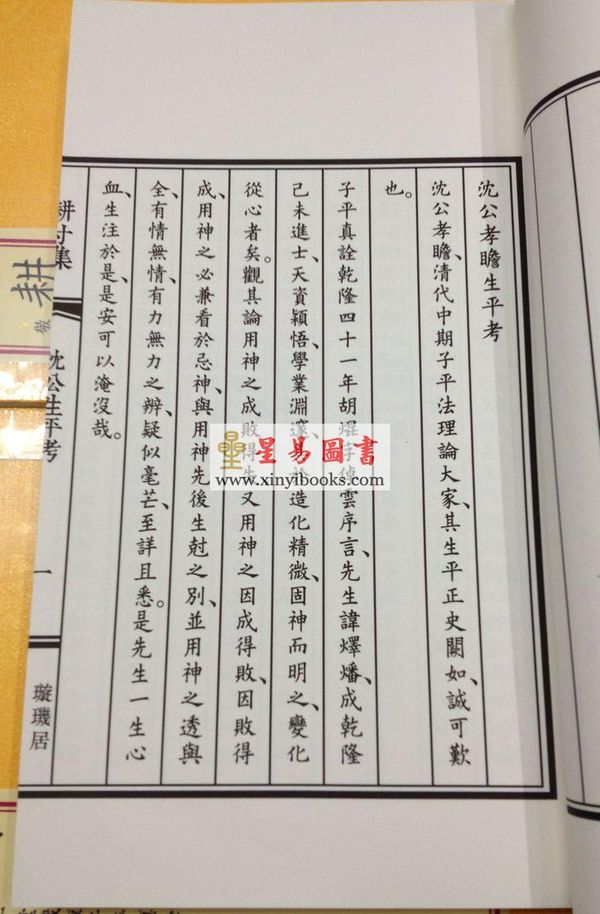 沈公孝瞻生平考
沈公孝瞻、清代中期子平法理論大家、其生平正史闕如、誠可歎
也。
子平真詮乾隆四十一年胡焜倬雲序言、先生諱燡燔、成乾隆
己未進士、天資穎悟、學業淵造化精微、固神而明之、變化
從心者矣。觀其論用神之成敗得又用神之因成得敗、因敗得
成、用神之必兼看於忌神、與用神先後生尅之別、並用神之透與
全、有情無情、有力無力之辨、疑似毫芒、至詳且悉。是先生一生心
血、生注於是、是安可以淹沒哉。
耕寸集
沈公生平考
一
璇璣居
耕
敬
星易圖書
www.xinyibooks.com